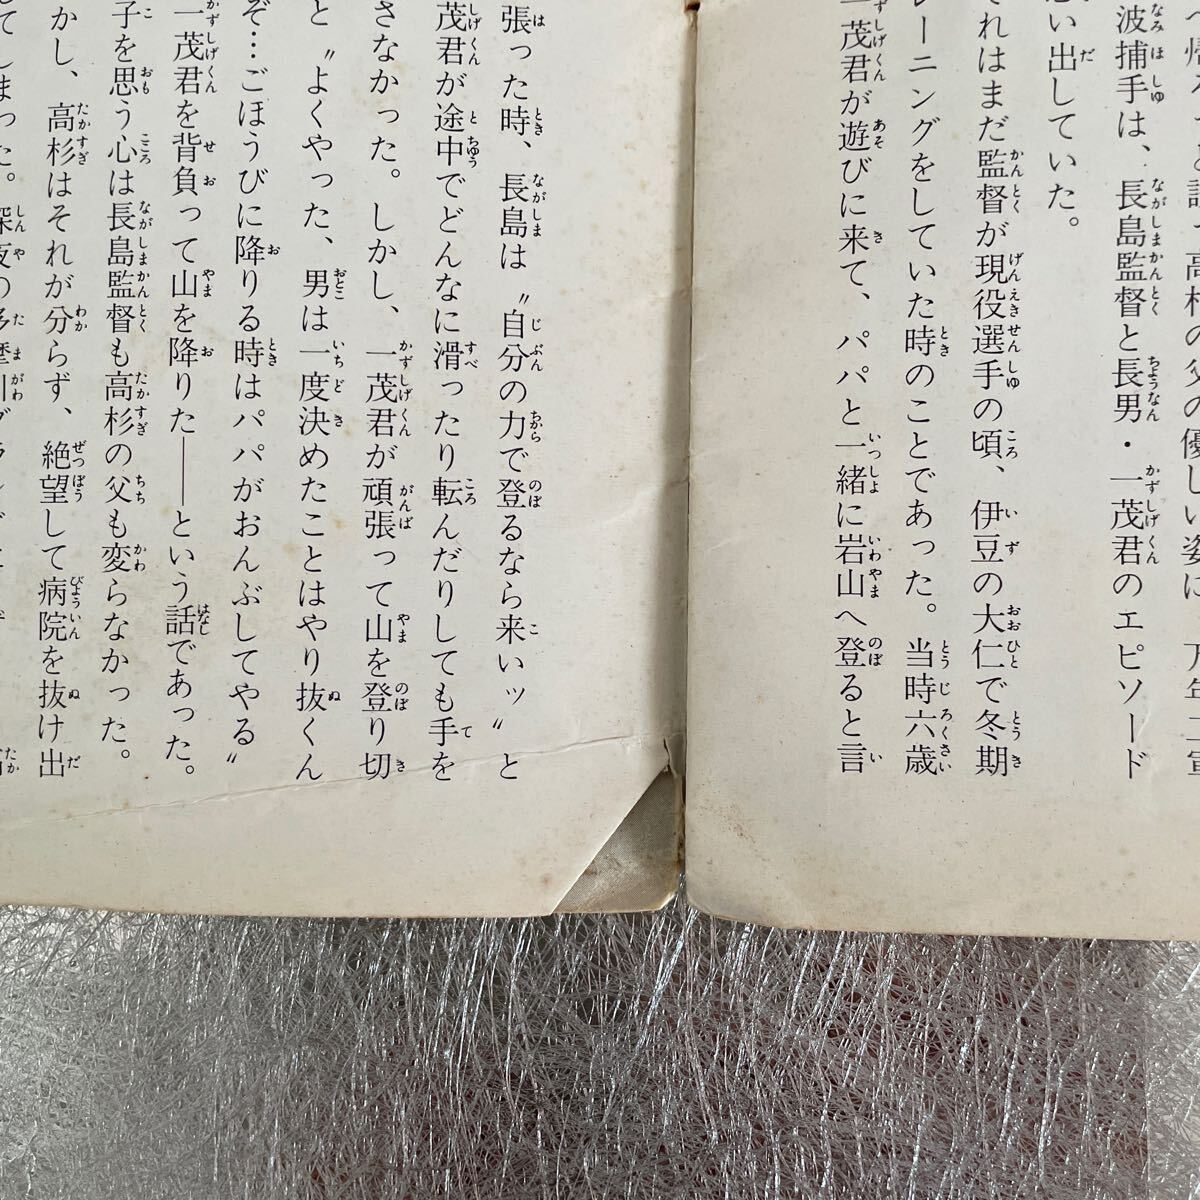 高杉の父の優しい姿に、
波捕手は、長島監督と長男・一茂君のエピソード
い出していた。
れはまだ監督が現役選手の頃、伊豆の大仁で冬期
レーニングをしていた時のことであった。当時六歳
一茂君が遊びに来て、パパと一緒に岩山へ登ると言
張った時、長島は〝自分の力で登るなら来いッ〟と
茂君が途中でどんなに滑ったり転んだりしても手を
さなかった。しかし、一茂君が頑張って山を登り切
と〝よくやった、男は一度決めたことはやり抜くん
ぞ…ごほうびに降りる時はパパがおんぶしてやる〟
一茂君を背負って山を降りた――という話であった。
子を思う心は長島監督も高杉の父も変らなかった。
かし、高杉はそれが分らず、絶望して病院を抜け出
てしまった。深夜の多摩川グラ